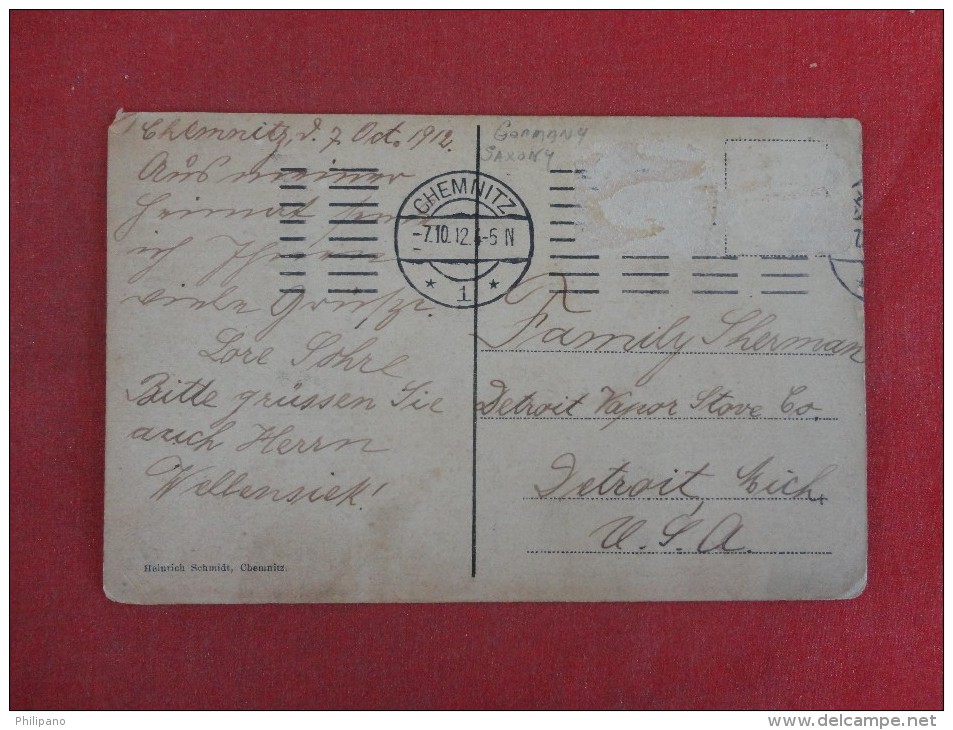 Chemnitz, d. 7. Oct. 1912.
Aus meiner
Heimat sende
ich Ihnen
viele Grüsse.
Lore Söhre
Bitte grüssen Sie
auch Herrn
Wellensiek!
Heinrich Schmidt, Chemnitz.
Germany
Saxony
CHEMNITZ
-7.10.12.4-5 N
* 1 *
Family Sherman
Detroit Vapor Stove Co.
Detroit, Mich.
U.S.A.
Philipano
www.delcampe.net